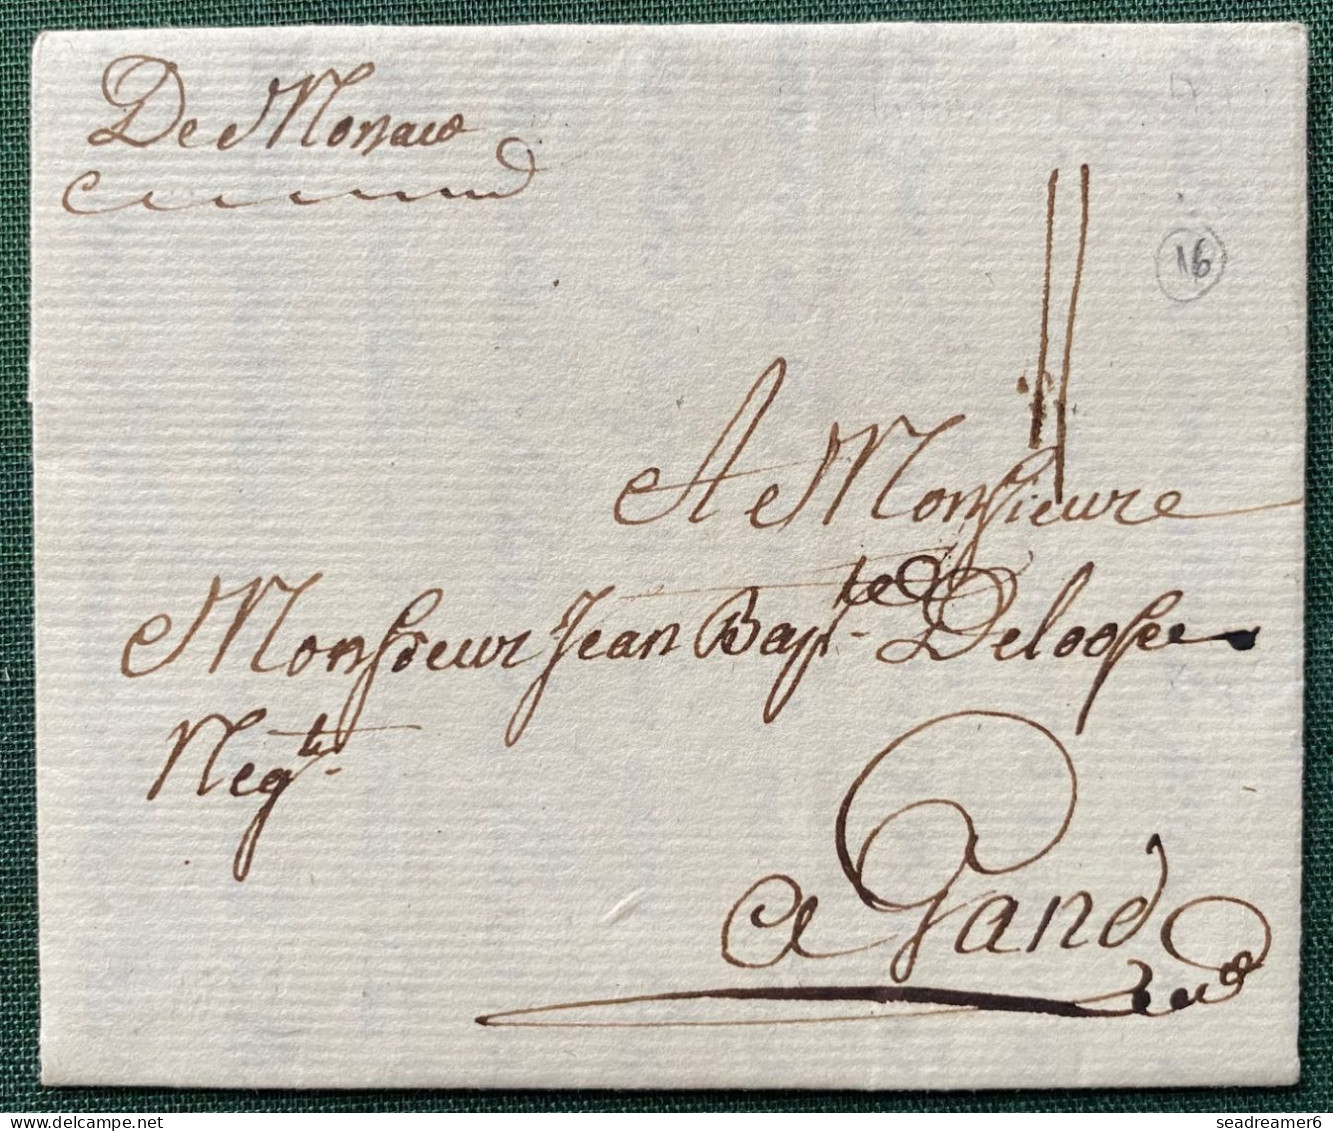 De Monaco
16
A Monsieure
Monsieur Jean Bapte Deloose
Negt
a Gand
seadreamer6
delcampe.net